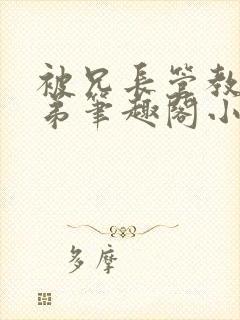 被兄长管教
弟笔趣阁小
多摩